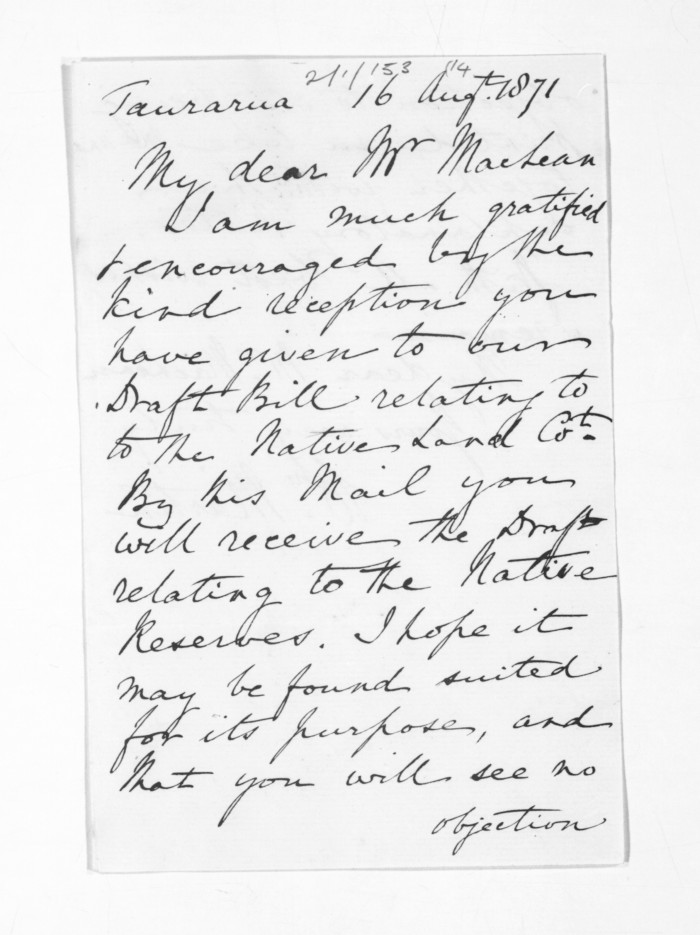 2/1/153 84
Taurarua 16 Augt. 1871
My dear Mr MacLean
I am much gratified
& encouraged by the
kind reception you
have given to our
Draft Bill relating to
to the Native Land Cot.
By this Mail you
will receive the Draft
relating to the Native
Reserves. I hope it
may be found suited
for its purpose, and
that you will see no
objection